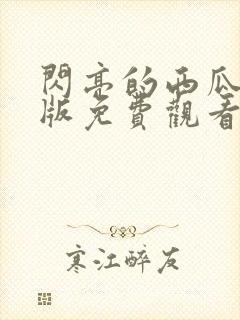 閃亮的西瓜
版免費觀看
寒江醉友